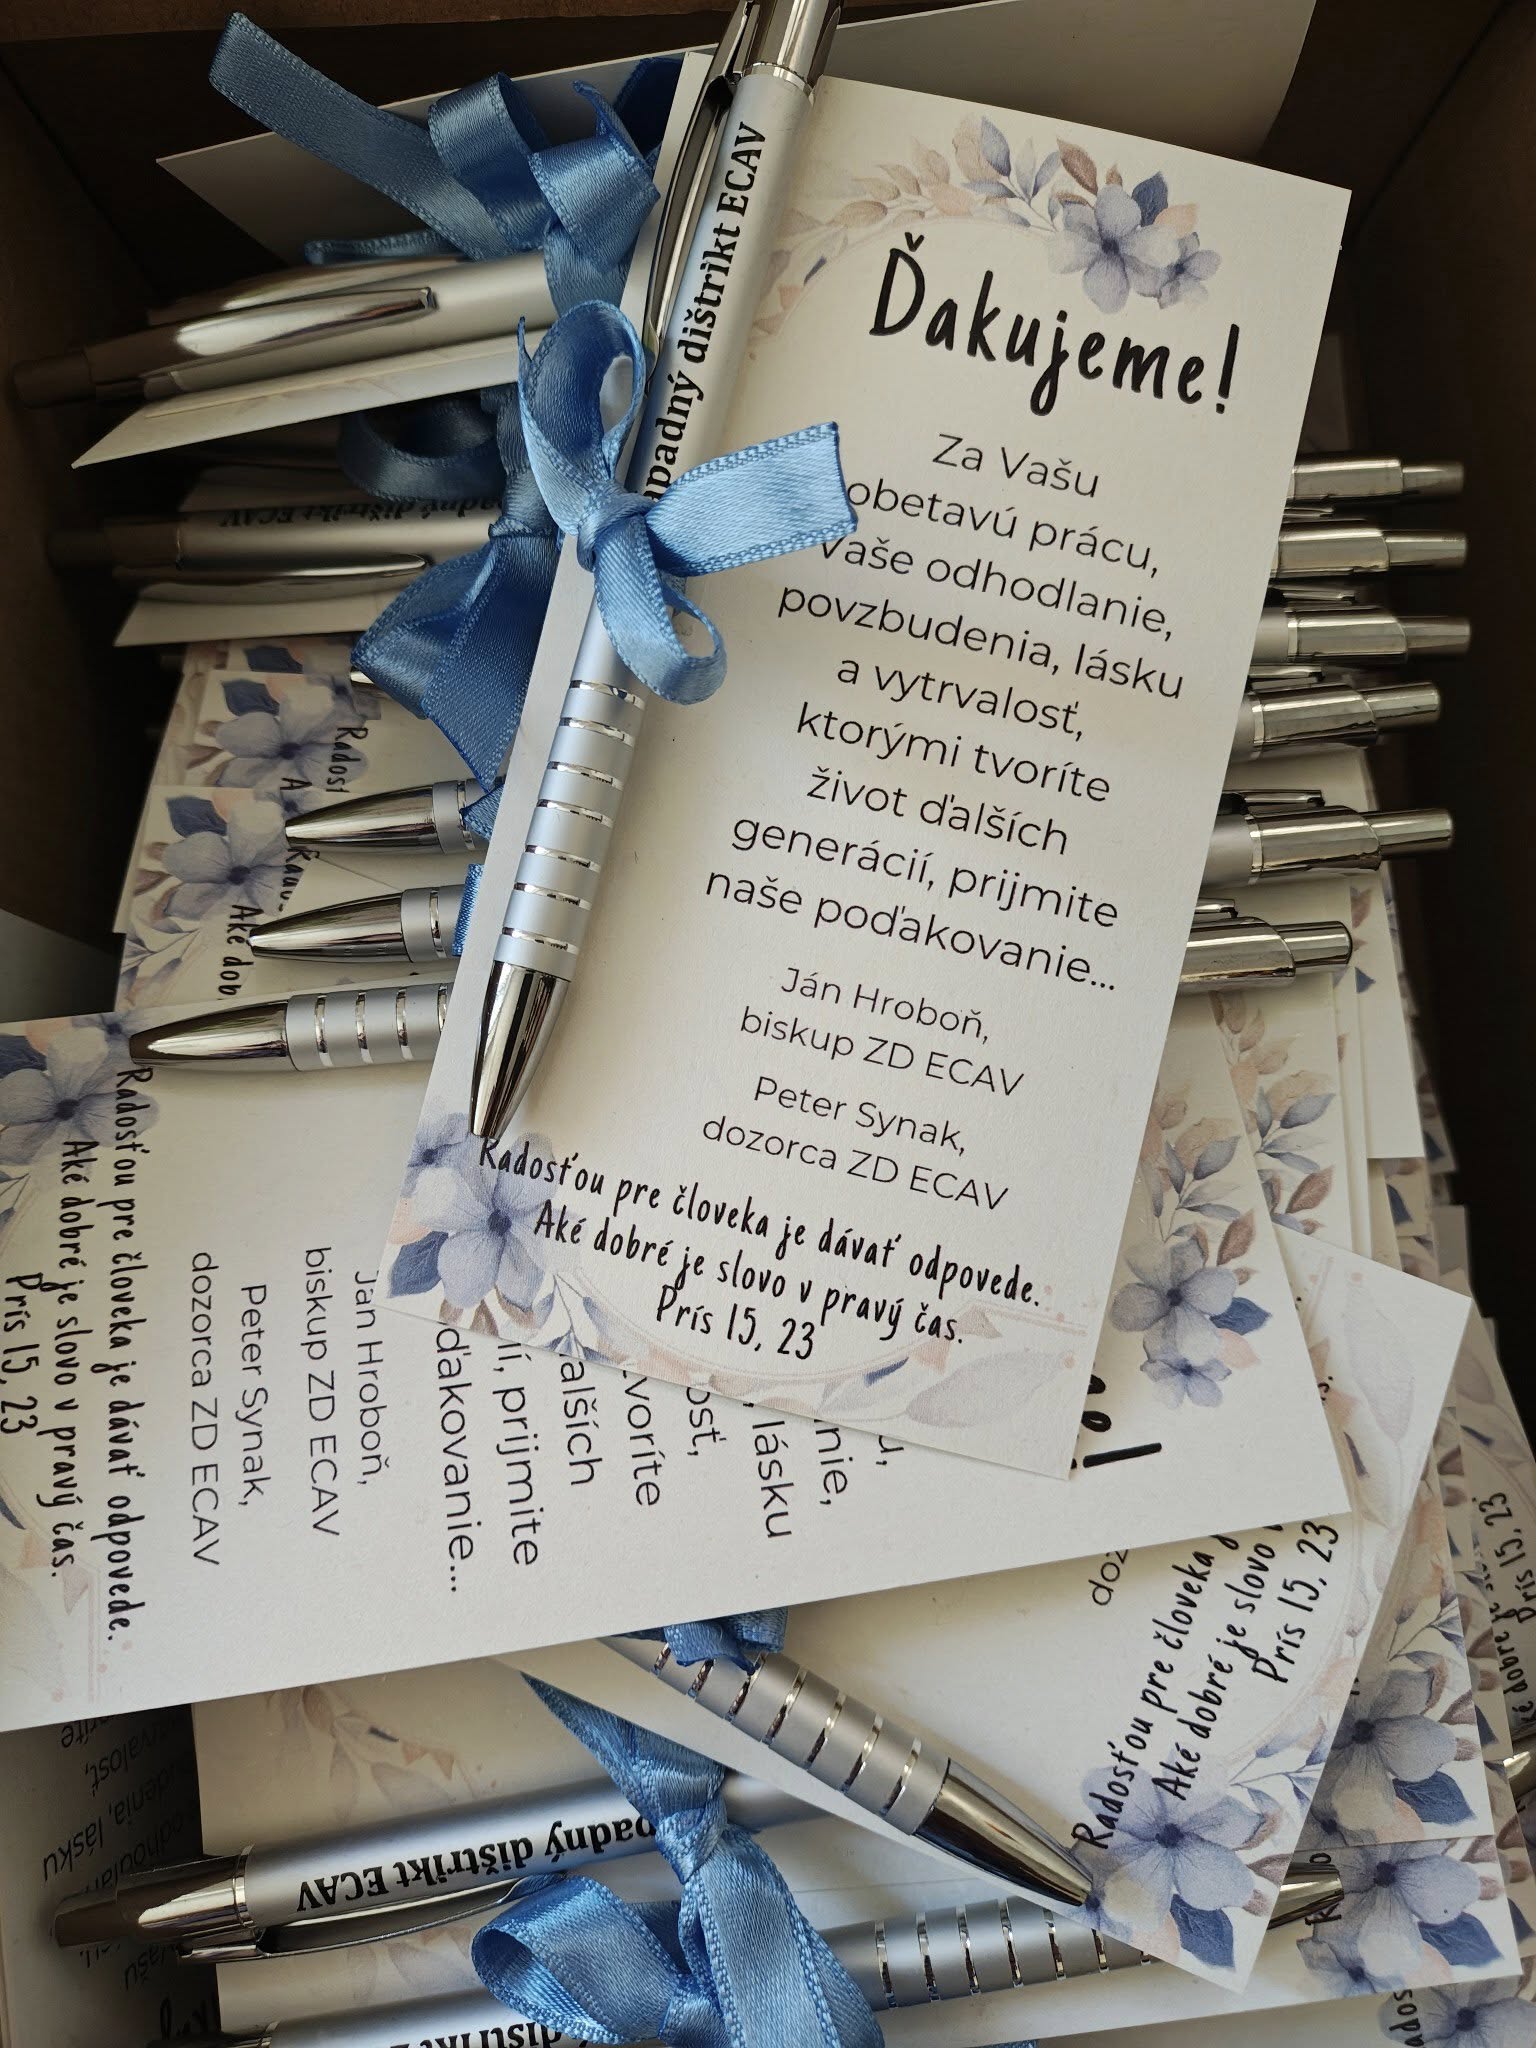 dištrikt ECAV
Ďakujeme!
Za Vašu
obetavú prácu,
Vaše odhodlanie,
povzbudenia, lásku
a vytrvalosť,
ktorými tvoríte
život ďalších
generácií, prijmite
naše poďakovanie...
Ján Hroboň,
biskup ZD ECAV
Peter Synak,
dozorca ZD ECAV
Radosťou pre človeka je dávať odpovede.
Aké dobré je slovo v pravý čas.
Prís 15, 23
dištrikt ECAV
Radosť
A
Aké dob
lásku
prijmite
ďakovanie...
Ján Hroboň,
biskup ZD ECAV
Peter Synak,
dozorca ZD ECAV
Radosťou pre človeka je dávať odpovede.
Aké dobré je slovo v pravý čas.
Prís 15, 23
Radosťou pre človeka
Aké dobré je slovo
Prís 15, 23
Prís 15, 23
dištrikt ECAV
lásku